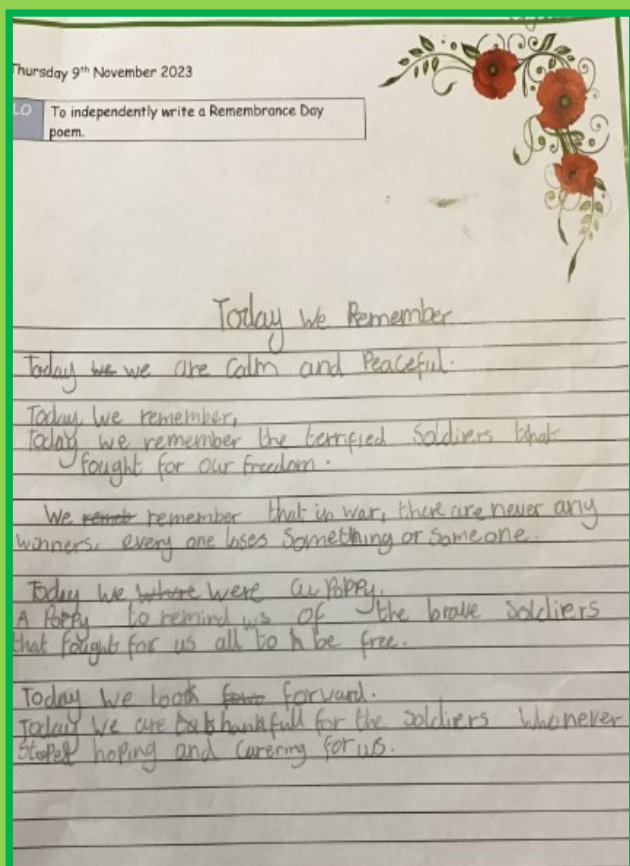 Thursday 9th November 2023
LO To independently write a Remembrance Day
poem.
Today we Remember
Today we we are Calm and Peaceful.
Today, We remember,
Today we remember the terrified Soldirers that
fought for our freedom.
We remeb remember that in war, there are never any
winners, every one loses Something or Someone.
Today we where were a Poppy.
A Poppy to remind us of the brave Soldiers
that fought for us all to h be free.
Today we look forward.
Today we are thankfull for the Soldiers Whonever
Stoped hoping and carering for us.